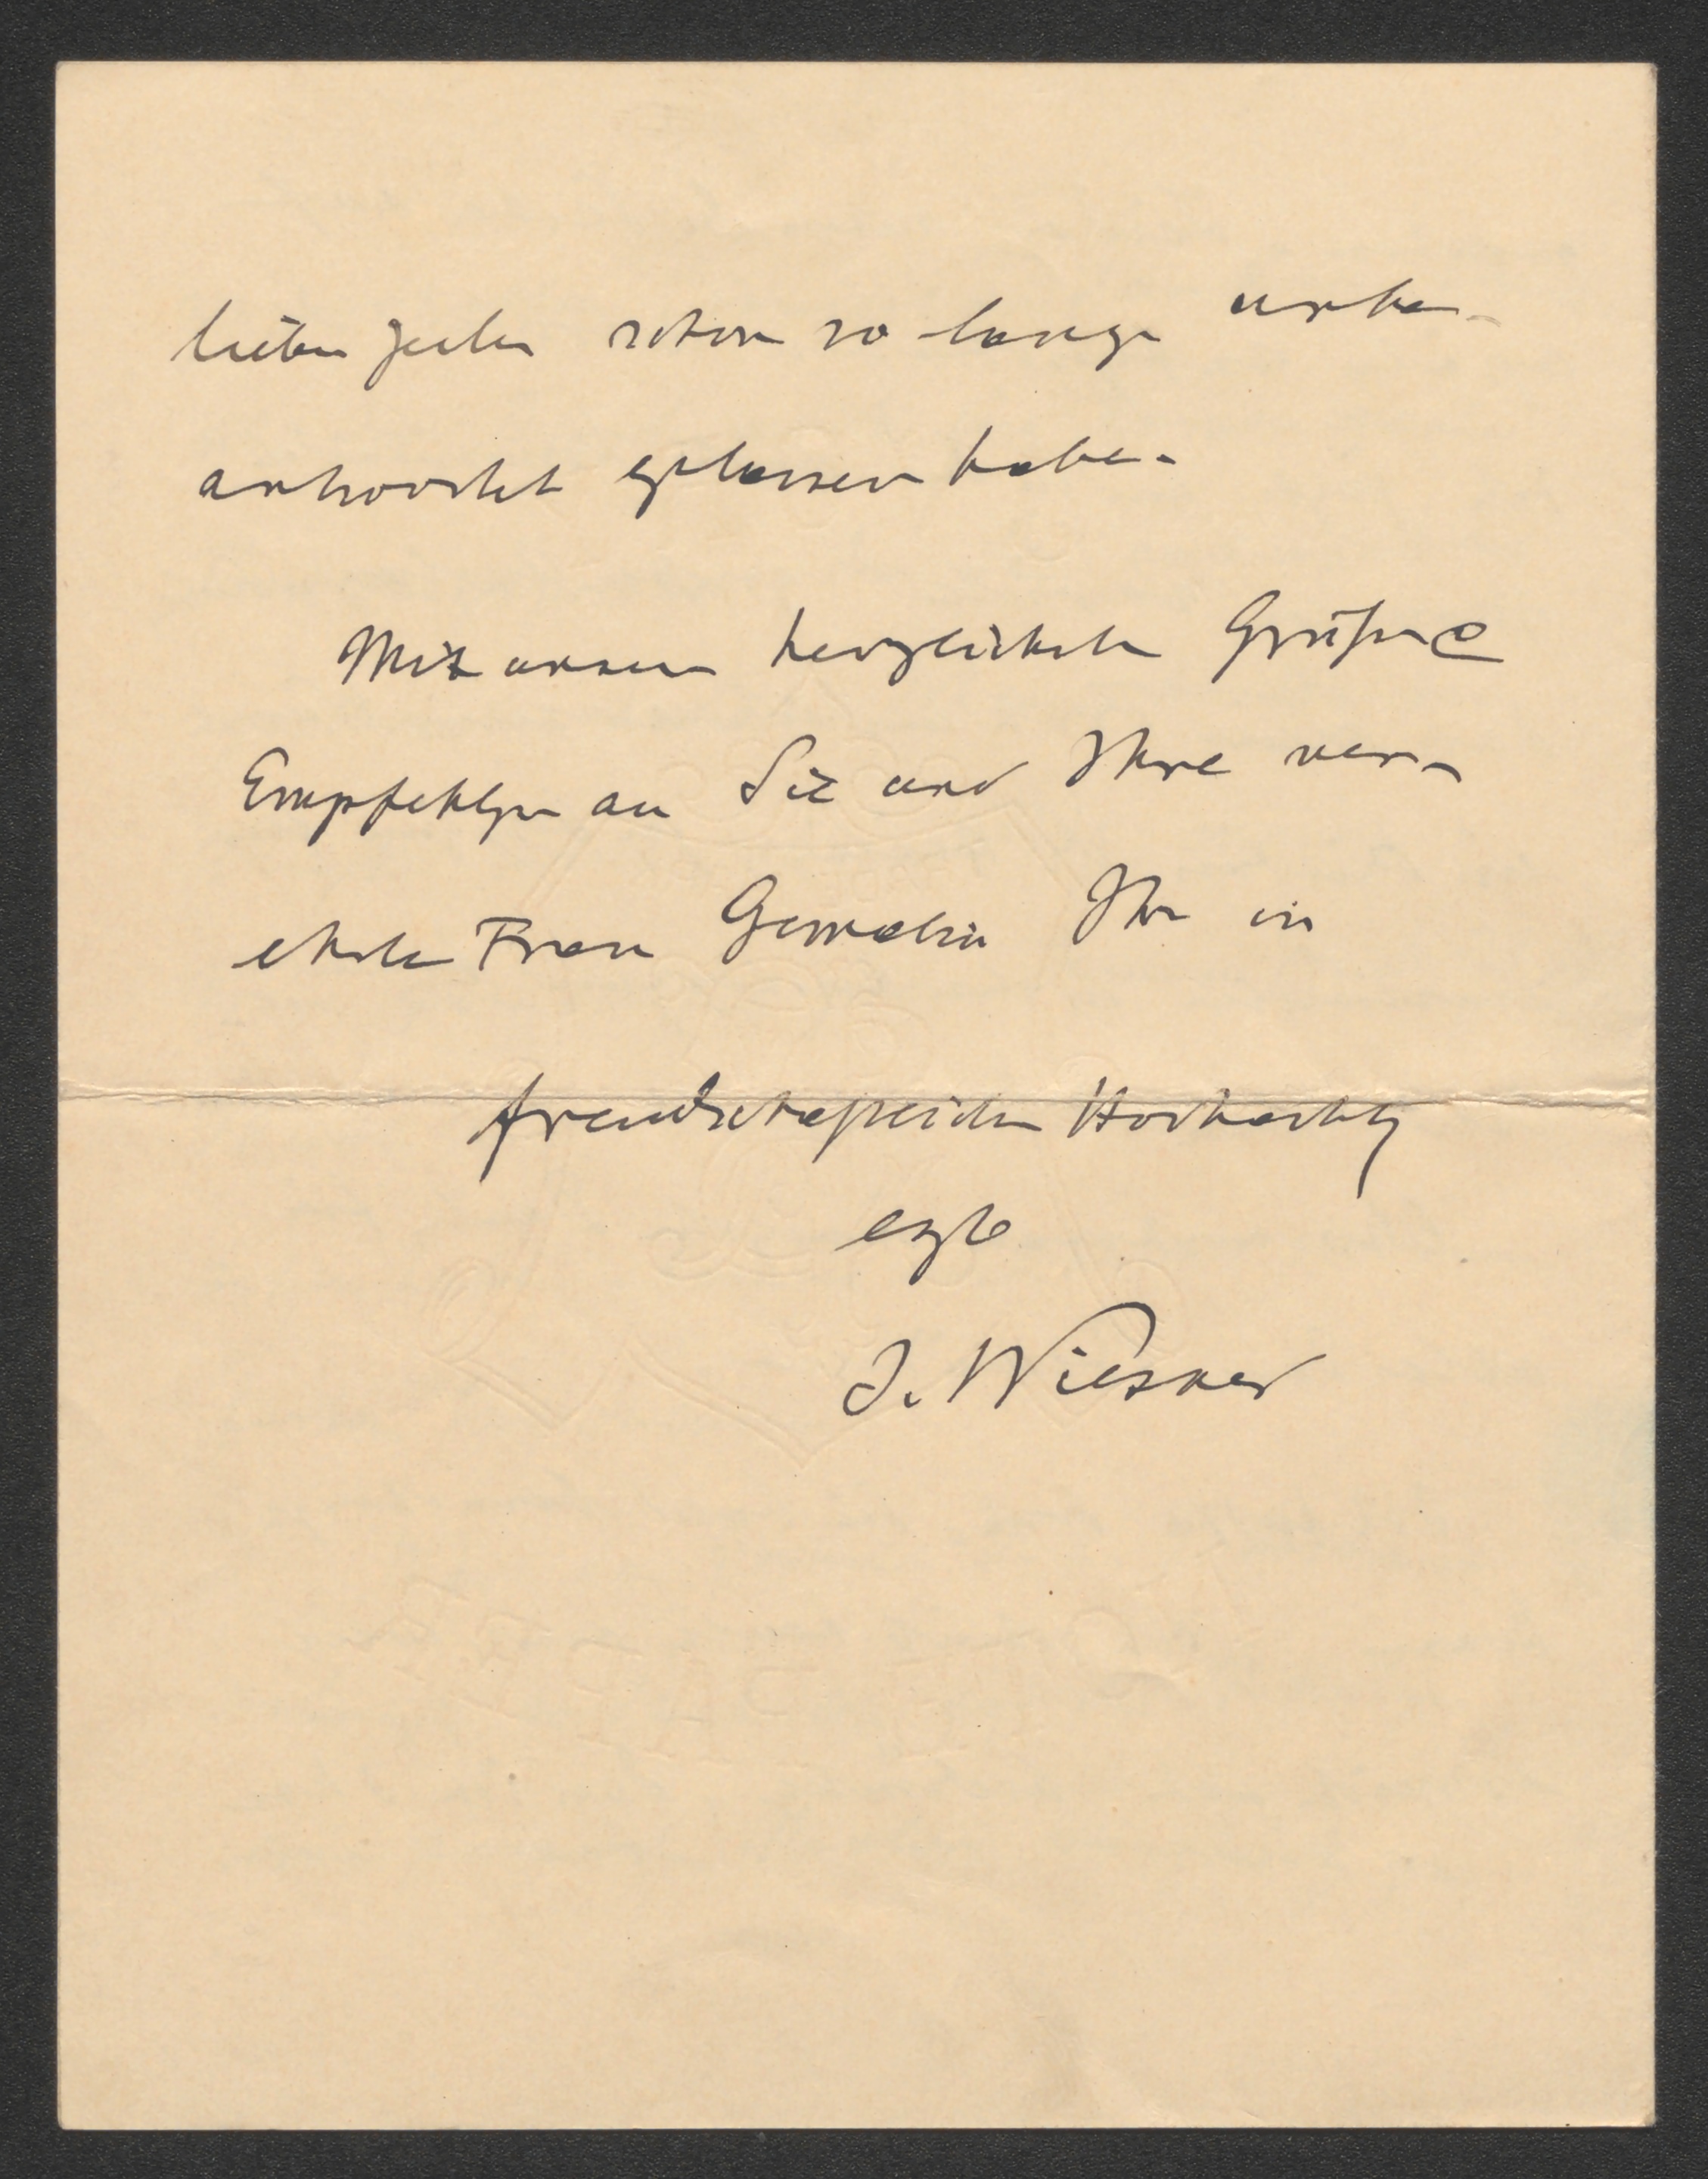 lieben Zeilen schon so lange unbe-
antwortet gelassen habe.
Mit unseren herzlichsten Grüßen &
Empfehlungen an Sie und Ihre ver-
ehrte Frau Gemalin Ihr in
freundschaftlicher Hochachtung
ergb
J. Wiesner